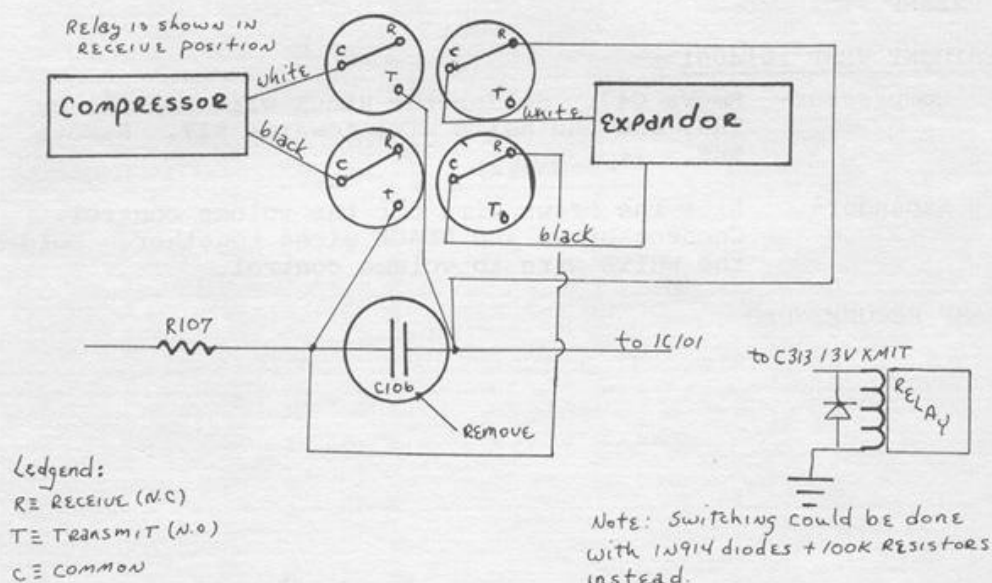 Relay is shown in
RECEIVE POSITION
C
R
T
C
R
T
white
COMPRESSOR
black
C
R
T
C
R
T
white
EXPANDOR
black
R107
C106
to IC101
REMOVE
to C313 13V XMIT
RELAY
Ledgend:
R≡ RECEIVE (N.C)
T≡ TRANSMIT (N.O)
C≡ COMMON
Note: Switching could be done
with 1N914 diodes + 100K RESISTORS
instead.